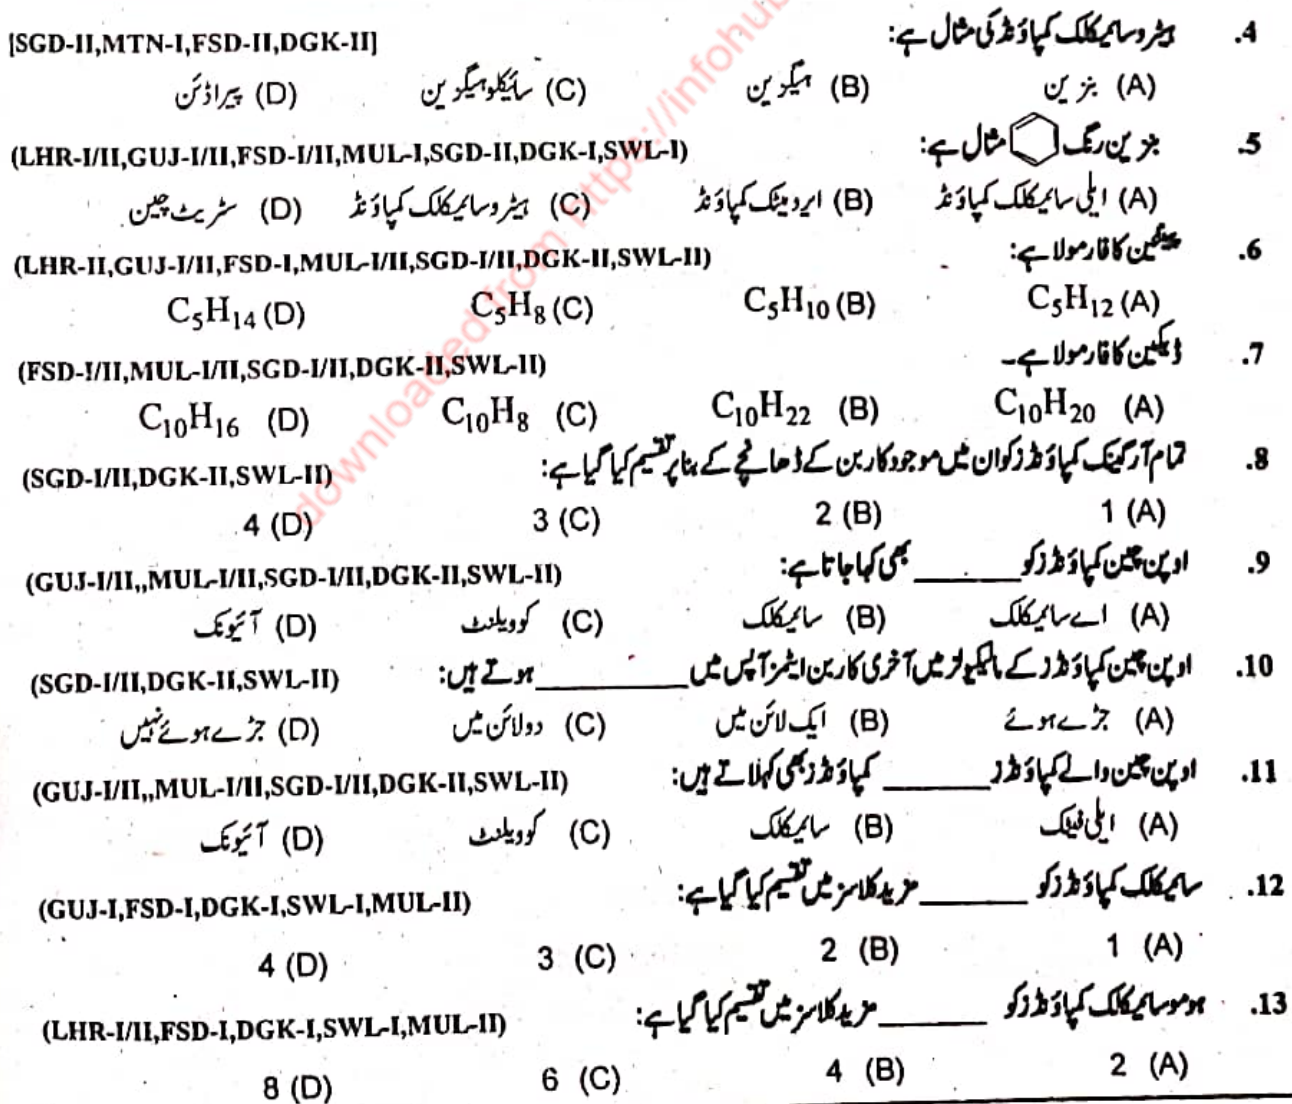 4. ہیٹروسائیکلک کمپاؤنڈ کی مثال ہے: [SGD-II,MTN-I,FSD-II,DGK-II]
(A) بنزین (B) ہیگزین (C) سائیکلوہیگزین (D) پیراڈئن
5. بنزین رنگ مثال ہے: (LHR-I/II,GUJ-I/II,FSD-I/II,MUL-I,SGD-II,DGK-I,SWL-I)
(A) ایلی سائیکلک کمپاؤنڈ (B) ایرومیٹک کمپاؤنڈ (C) ہیٹروسائیکلک کمپاؤنڈ (D) سٹریٹ چین
6. پینٹین کا فارمولا ہے: (LHR-II,GUJ-I/II,FSD-I,MUL-I/II,SGD-I/II,DGK-II,SWL-II)
(A) C₅H₁₂ (B) C₅H₁₀ (C) C₅H₈ (D) C₅H₁₄
7. ڈیکین کا فارمولا ہے۔ (FSD-I/II,MUL-I/II,SGD-I/II,DGK-II,SWL-II)
(A) C₁₀H₂₀ (B) C₁₀H₂₂ (C) C₁₀H₈ (D) C₁₀H₁₆
8. تمام آرگینک کمپاؤنڈز کو ان میں موجود کاربن کے ڈھانچے کے بنا پر تقسیم کیا گیا ہے: (SGD-I/II,DGK-II,SWL-II)
(A) 1 (B) 2 (C) 3 (D) 4
9. اوپن چین کمپاؤنڈز کو ______ بھی کہا جاتا ہے: (GUJ-I/II,,MUL-I/II,SGD-I/II,DGK-II,SWL-II)
(A) اے سائیکلک (B) سائیکلک (C) کوویلنٹ (D) آئیونک
10. اوپن چین کمپاؤنڈز کے مالیکیولز میں آخری کاربن ایٹمز آپس میں ______ ہوتے ہیں: (SGD-I/II,DGK-II,SWL-II)
(A) جڑے ہوئے (B) ایک لائن میں (C) دو لائن میں (D) جڑے ہوئے نہیں
11. اوپن چین والے کمپاؤنڈز ______ کمپاؤنڈز بھی کہلاتے ہیں: (GUJ-I/II,,MUL-I/II,SGD-I/II,DGK-II,SWL-II)
(A) ایلی فیٹک (B) سائیکلک (C) کوویلنٹ (D) آئیونک
12. سائیکلک کمپاؤنڈز کو ______ مزید کلاسز میں تقسیم کیا گیا ہے: (GUJ-I,FSD-I,DGK-I,SWL-I,MUL-II)
(A) 1 (B) 2 (C) 3 (D) 4
13. ہوموسائیکلک کمپاؤنڈز کو ______ مزید کلاسز میں تقسیم کیا گیا ہے: (LHR-I/II,FSD-I,DGK-I,SWL-I,MUL-II)
(A) 2 (B) 4 (C) 6 (D) 8
downloaded from https://infohub